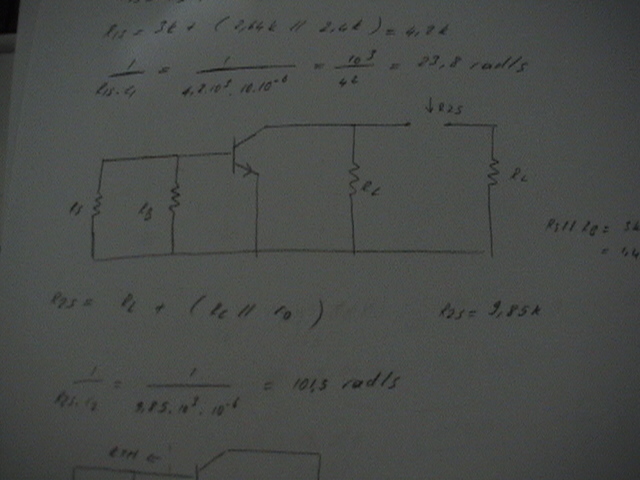 R1s = 3k + (2,64k // 2,4k) = 4,2k
1 / R1s.C1 = 1 / 4,2.10³.10.10⁻⁶ = 10³ / 42 = 23,8 rad/s
↓R2s
rs
RB
Rc
RL
R2s = RL + (Rc // ro)
R2s = 9,85k
1 / R2s.C2 = 1 / 9,85.10³.10⁻⁶ = 101,5 rad/s